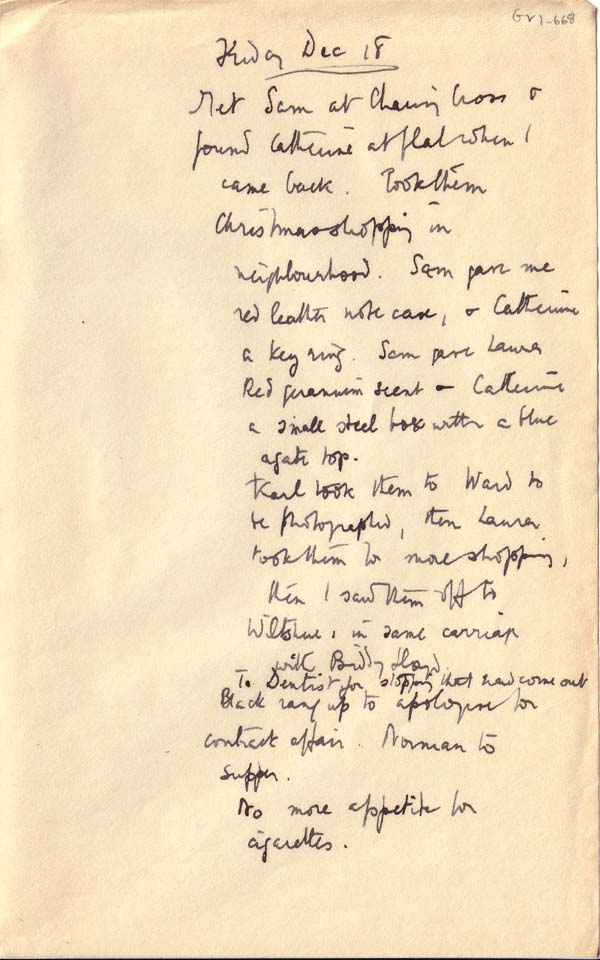 GV1-668
Friday Dec 18
Met Sam at Charing Cross &
found Catherine at flat when I
came back. Took them
Christmas shopping in
neighbourhood. Sam gave me
red leather note case, & Catherine
a key ring. Sam gave Laura
Red geranium scent & Catherine
a small steel box with a blue
agate top.
Karl took them to Ward to
be photographed, then Laura
took them for more shopping,
then I saw them off to
Wiltshire, in same carriage
with Biddy Lloyd.
To Dentist for stopping that had come out
Black rang up to apologise for
contract affair. Norman to
supper.
No more appetite for
cigarettes.